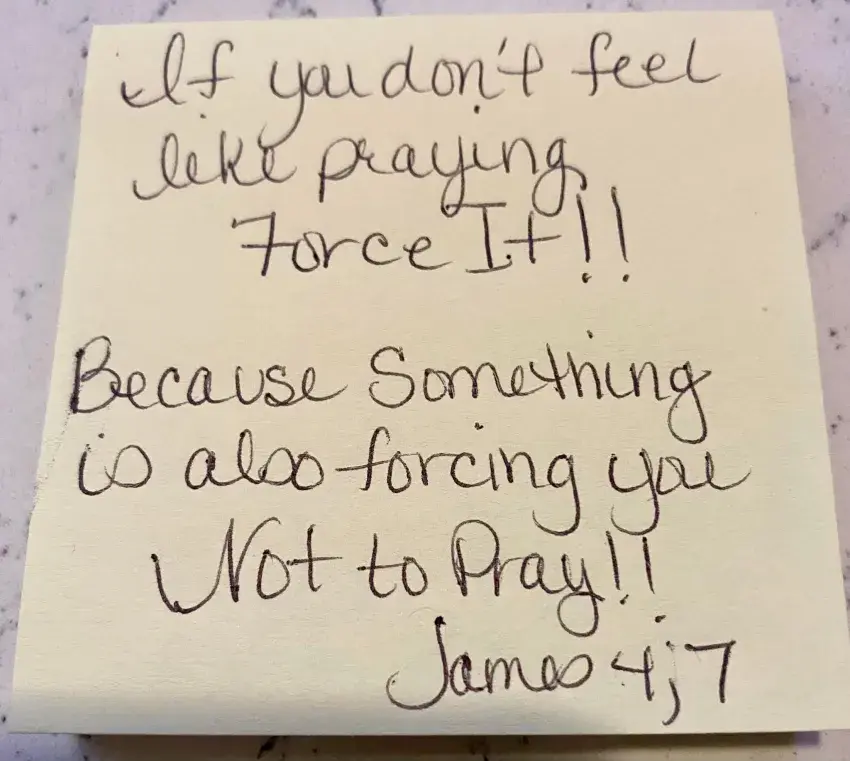 If you don't feel
like praying
Force It!!
Because Something
is also forcing you
Not to Pray!!
James 4;7